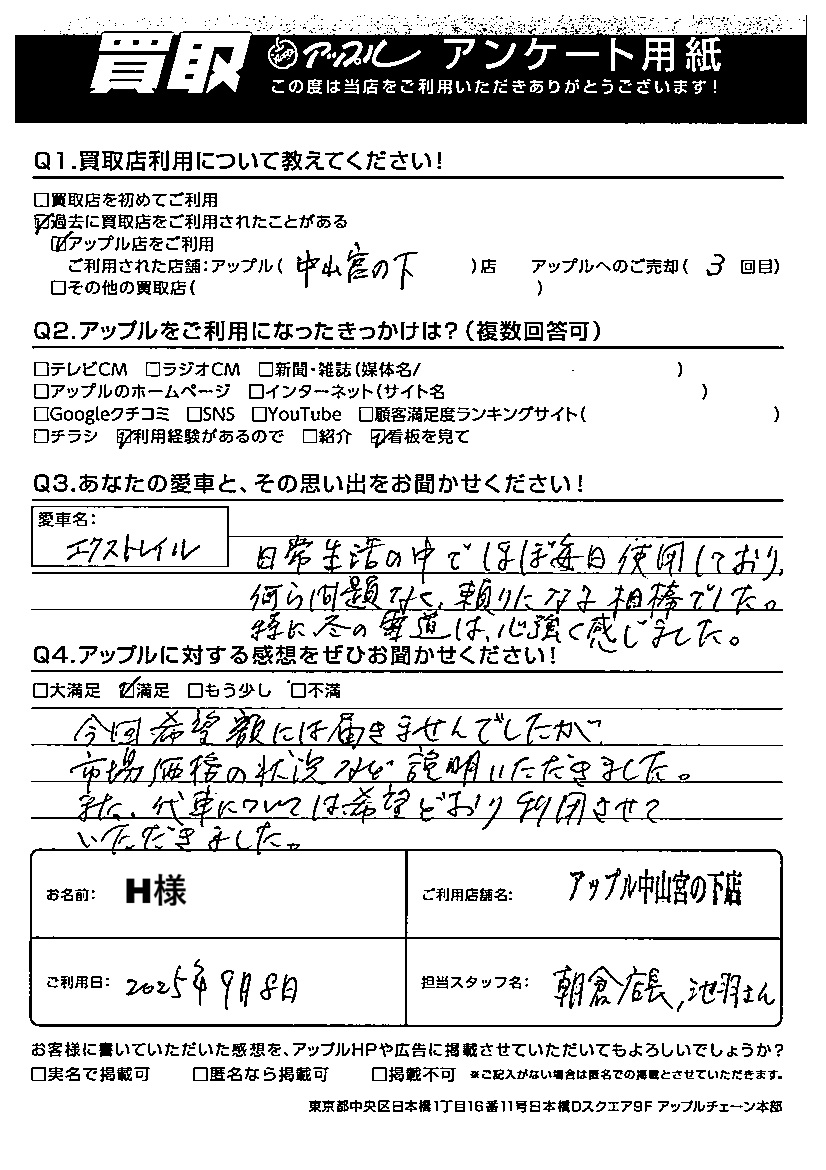 買取 アップル アンケート用紙
この度は当店をご利用いただきありがとうございます!
Q1.買取店利用について教えてください!
□買取店を初めてご利用
☑過去に買取店をご利用されたことがある
☑アップル店をご利用
ご利用された店舗:アップル( 中山宮の下 )店 アップルへのご売却( 3 回目)
□その他の買取店( )
Q2.アップルをご利用になったきっかけは?(複数回答可)
□テレビCM □ラジオCM □新聞・雑誌(媒体名/ )
□アップルのホームページ □インターネット(サイト名 )
□Googleクチコミ □SNS □YouTube □顧客満足度ランキングサイト( )
□チラシ ☑利用経験があるので □紹介 ☑看板を見て
Q3.あなたの愛車と、その思い出をお聞かせください!
愛車名:
エクストレイル
日常生活の中でほぼ毎日使用しており、
何ら問題なく、頼りになる相棒でした。
特に冬の雪道は、心強く感じました。
Q4.アップルに対する感想をぜひお聞かせください!
□大満足 ☑満足 □もう少し □不満
今回希望額には届きませんでしたが
市場価格の状況など説明いただきました。
また、代車については希望どおり利用させて
いただきました。
お名前: H様 ご利用店舗名: アップル中山宮の下店
ご利用日: 2025年9月8日 担当スタッフ名: 朝倉店長、池羽さん
お客様に書いていただいた感想を、アップルHPや広告に掲載させていただいてもよろしいでしょうか?
□実名で掲載可 □匿名なら掲載可 □掲載不可 ※ご記入がない場合は匿名での掲載とさせていただきます。
東京都中央区日本橋1丁目16番11号日本橋Dスクエア9F アップルチェーン本部